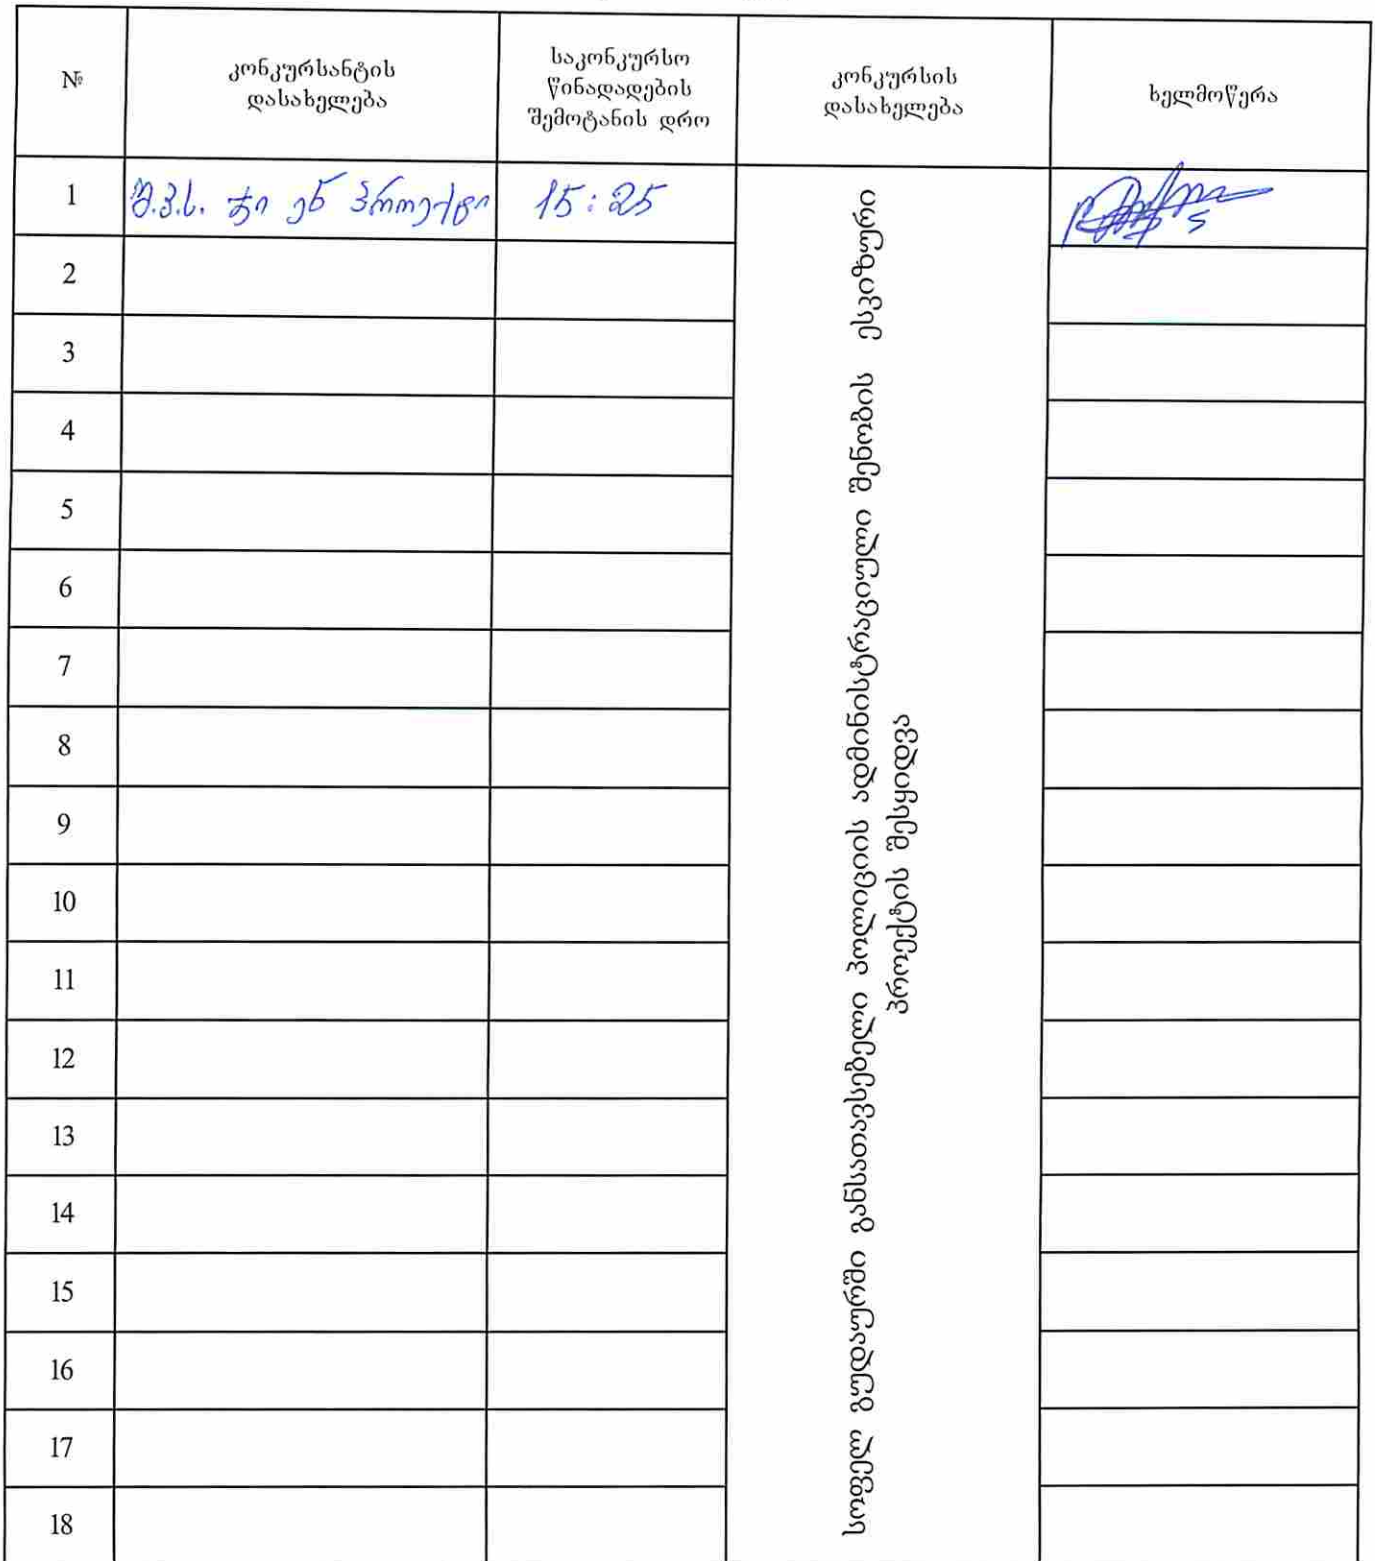 №
კონკურსანტის
დასახელება
საკონკურსო
წინადადების
შემოტანის დრო
კონკურსის
დასახელება
ხელმოწერა
1
შ.პ.ს. ჯი ენ პროექტი
15:25
სოფელ გუდაურში განსათავსებელი პოლიციის ადმინისტრაციული შენობის ესკიზური
პროექტის შესყიდვა
2
3
4
5
6
7
8
9
10
11
12
13
14
15
16
17
18